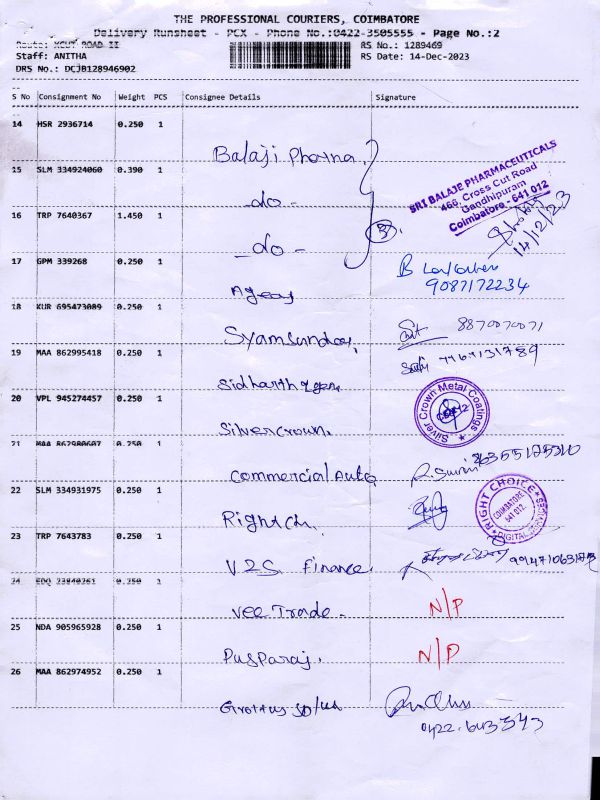 THE PROFESSIONAL COURIERS, COIMBATORE
Delivery Runsheet - PCX - Phone No.:0422-3505555 - Page No.:2
Route: XCUT ROAD II
RS No.: 1289469
Staff: ANITHA
RS Date: 14-Dec-2023
DRS No.: DCJB128946902
S No Consignment No Weight PCS Consignee Details Signature
14 HSR 2936714 0.250 1 Balaji Pharma
15 SLM 334924060 0.390 1 -do-
SRI BALAJE PHARMACEUTICALS
466, Cross Cut Road
Gandhipuram
Coimbatore - 641 012
16 TRP 7640367 1.450 1 -do- 3
14/12/23
17 GPM 339268 0.250 1 Agency
9087172234
18 KUR 695473089 0.250 1 Syamsundar
8870070071
19 MAA 862995418 0.250 1 Sidharth Agen
20 VPL 945274457 0.250 1 Silver crown
Silver Crown Metal Coatings
21 MAA 862980607 0.250 1 Commercial Auto
22 SLM 334931975 0.250 1 Right Ch
RIGHT CHOICE
COIMBATORE
641 012.
DIGITAL SERVICES
23 TRP 7643783 0.250 1 V2S Finance
24 EDQ 23840261 0.250 1 Vee Trade - N/P
25 NDA 905965928 0.250 1 Pusparaj. N/P
26 MAA 862974952 0.250 1